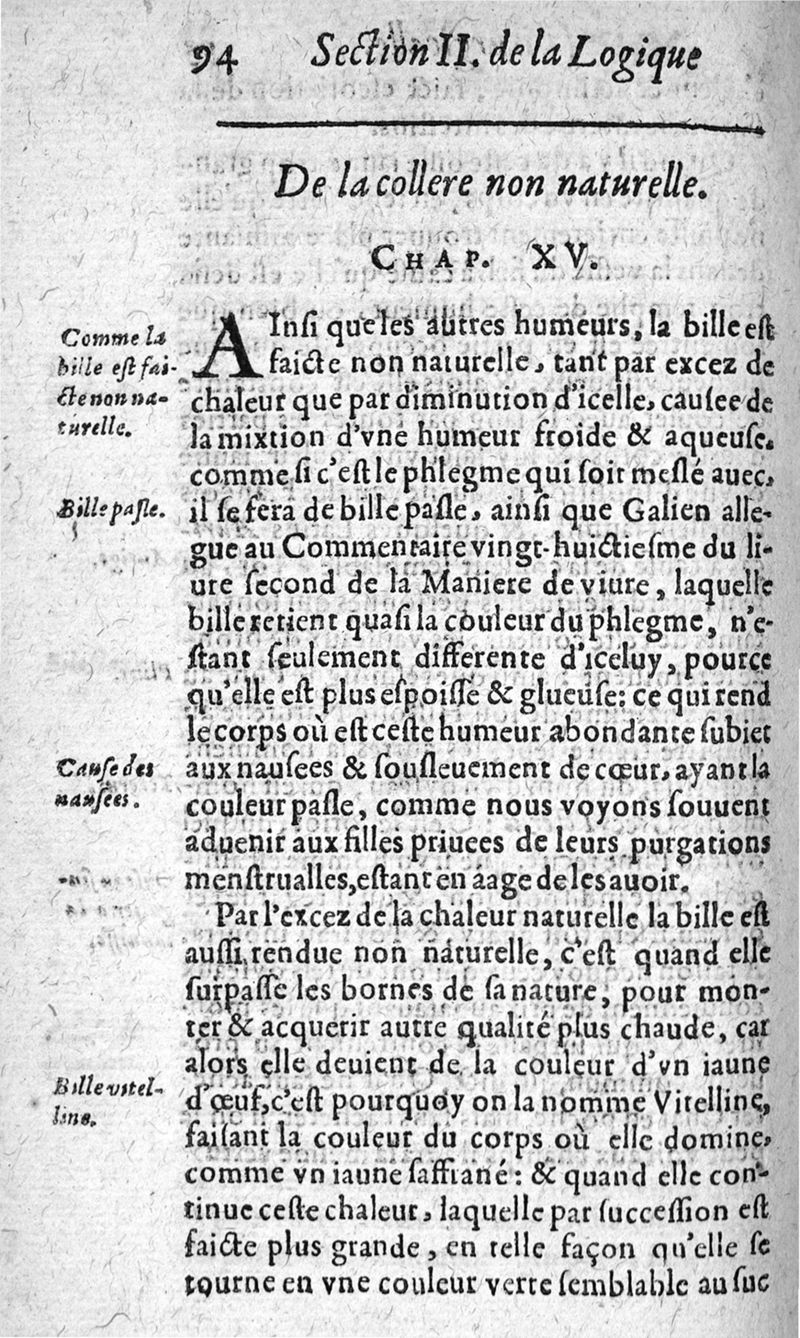 94 Section II. de la Logique
De la collere non naturelle.
CHAP. XV.
Comme la
bille est fai-
cte non na-
turelle.
AInſi que les autres humeurs, la bille eſt
faicte non naturelle, tant par excez de
chaleur que par diminution d'icelle, cauſee de
la mixtion d'vne humeur froide & aqueuſe,
comme ſi c'eſt le phlegme qui ſoit meſlé auec,
Bille paſle.
il ſe fera de bille paſle, ainſi que Galien alle-
gue au Commentaire vingt-huictieſme du li-
ure ſecond de la Maniere de viure, laquelle
bille retient quaſi la couleur du phlegme, n'e-
ſtant ſeulement differente d'iceluy, pource
qu'elle eſt plus eſpoiſſe & glueuſe: ce qui rend
le corps où eſt ceſte humeur abondante ſubiet
Cauſe des
nauſees.
aux nauſees & ſouſleuement de cœur, ayant la
couleur paſle, comme nous voyons ſouuent
aduenir aux filles priuees de leurs purgations
menſtrualles, eſtant en áage de les auoir.
Par l'excez de la chaleur naturelle la bille eſt
auſſi rendue non naturelle, c'eſt quand elle
ſurpaſſe les bornes de ſa nature, pour mon-
ter & acquerir autre qualité plus chaude, car
alors elle deuient de la couleur d'vn iaune
Bille vitel-
line.
d'œuf, c'eſt pourquoy on la nomme Vitelline,
faiſant la couleur du corps où elle domine,
comme vn iaune ſaffrané: & quand elle con-
tinue ceſte chaleur, laquelle par ſucceſſion eſt
faicte plus grande, en telle façon qu'elle ſe
tourne en vne couleur verte ſemblable au ſuc